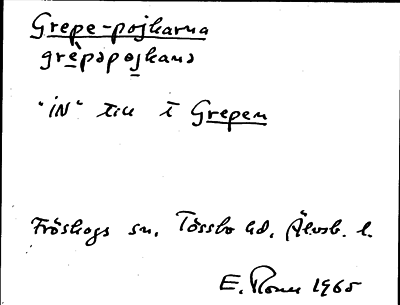 Grepe-pojkarna
grèpəpojkana
"iN" till i Grepen
Fröskogs sn. Tössbo hd. Älvsb. l.
E. 1965